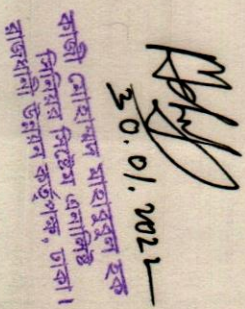 30.01.2022
কাজী মোহাম্মদ মাহাবুবুল হক
সিনিয়র সিস্টেম এনালিস্ট
রাজধানী উন্নয়ন কর্তৃপক্ষ, ঢাকা।